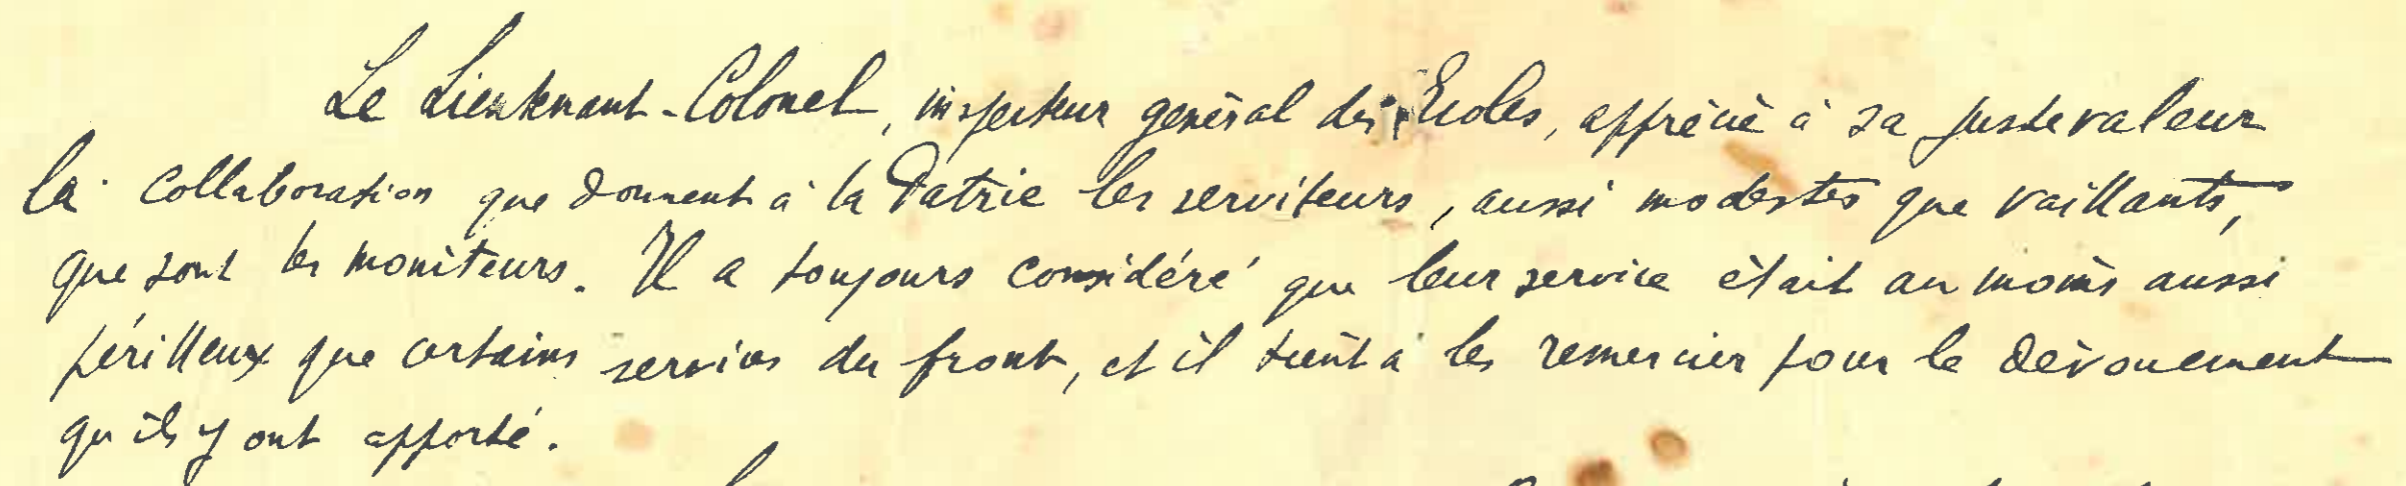 Le Lieutenant-Colonel, inspecteur général des Ecoles, apprécie à sa juste valeur
la collaboration que donnent à la Patrie les serviteurs, aussi modestes que vaillants,
que sont les moniteurs. Il a toujours considéré que leur service était au moins aussi
périlleux que certains services du front, et il tient à les remercier pour le dévouement
qu'ils y ont apporté.